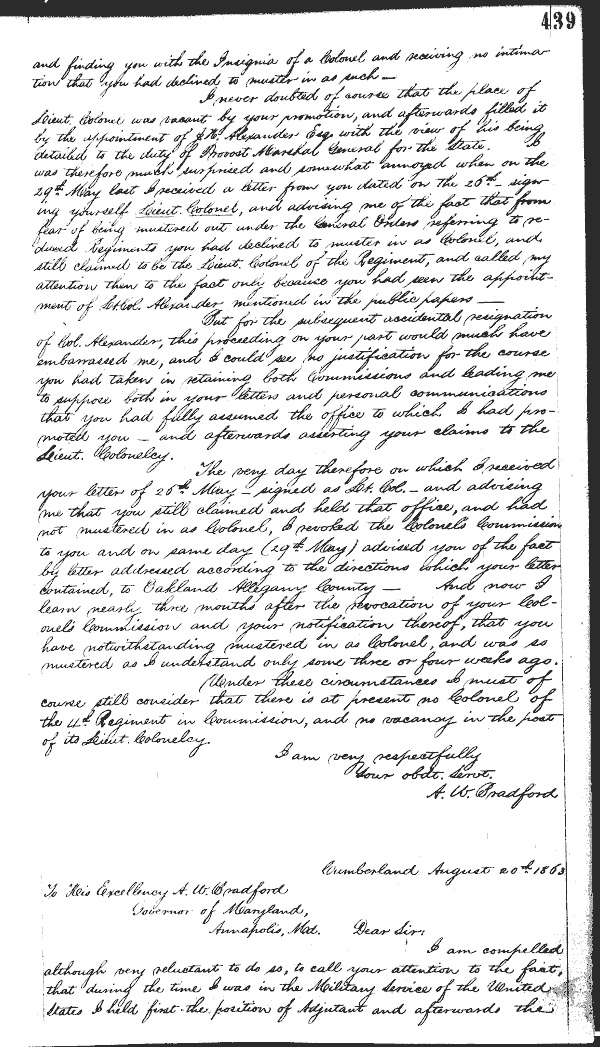 439
and finding you with the Insignia of a Colonel and receiving no intima-
tion that you had declined to muster in as such —
I never doubted of course that the place of
Lieut. Colonel was vacant by your promotion, and afterwards filled it
by the appointment of J.H. Alexander Esq. with the view of his being
detailed to the duty of Provost Marshal General for the State. I
was therefore much surprised and somewhat annoyed when on the
29th May last I received a letter from you dated on the 26th — sign-
ing yourself Lieut. Colonel, and advising me of the fact that from
fear of being mustered out under the General Orders referring to re-
duced Regiments you had declined to muster in as Colonel, and
still claimed to be the Lieut. Colonel of the Regiment, and called my
attention them to the fact only because you had seen the appoint-
ment of Lt. Col. Alexander mentioned in the public papers —
But for the subsequent accidental resignation
of Col. Alexander, this proceeding on your part would much have
embarrassed me, and I could see no justification for the course
you had taken in retaining both Commissions and leading me
to suppose both in your letters and personal communications
that you had fully assumed the office to which I had pro-
moted you — and afterwards asserting your claims to the
Lieut. Colonelcy.
The very day therefore on which I received
your letter of 26th May — signed as Lt. Col. — and advising
me that you still claimed and held that office, and had
not mustered in as Colonel, I revoked the Colonel's Commission
to you and on same day (29th May) advised you of the fact
by letter addressed according to the directions which your letter
contained, to Oakland Allegany County — And now I
learn nearly three months after the revocation of your Col-
onel's Commission and your notification thereof, that you
have notwithstanding mustered in as Colonel, and was so
mustered as I understand only some three or four weeks ago.
Under these circumstances I must of
course still consider that there is at present no Colonel of
the 4th Regiment in Commission, and no vacancy in the post
of its Lieut. Colonelcy.
I am very respectfully
Your obdt. servt.
A. W. Bradford
Cumberland August 20th 1863
To His Excellency A. W. Bradford
Governor of Maryland,
Annapolis, Md. Dear Sir:
I am compelled
although very reluctant to do so, to call your attention to the fact,
that during the time I was in the Military Service of the United
States I held first the position of Adjutant and afterwards the